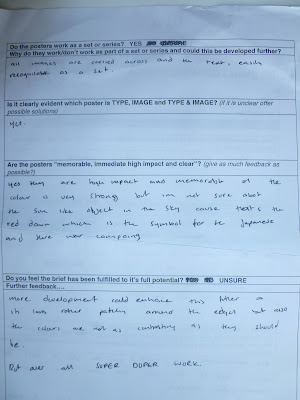 Do the posters work as a set or series? YES
Why do they work/don't work as part of a set or series and could this be developed further?
all images are carried across and the text, easily
recognisable as a set.
Is it clearly evident which poster is TYPE, IMAGE and TYPE & IMAGE? (if it is unclear offer
possible solutions)
yes.
Are the posters "memorable, immediate high impact and clear"? (give as much feedback as
possible?)
yes they are high impact and memorable as the
colour is very strong but im not sure about
the sun like object in the sky cause that's the
red dawn which is the symbol for the Japanese
and there war campaing
Do you feel the brief has been fulfilled to it's full potential? UNSURE
Further feedback....
more development could enhance this further as
it looks rather patchy around the edges but also
the colours are not as contrasting as they should
be.
But over all SUPER DUPER WORK.